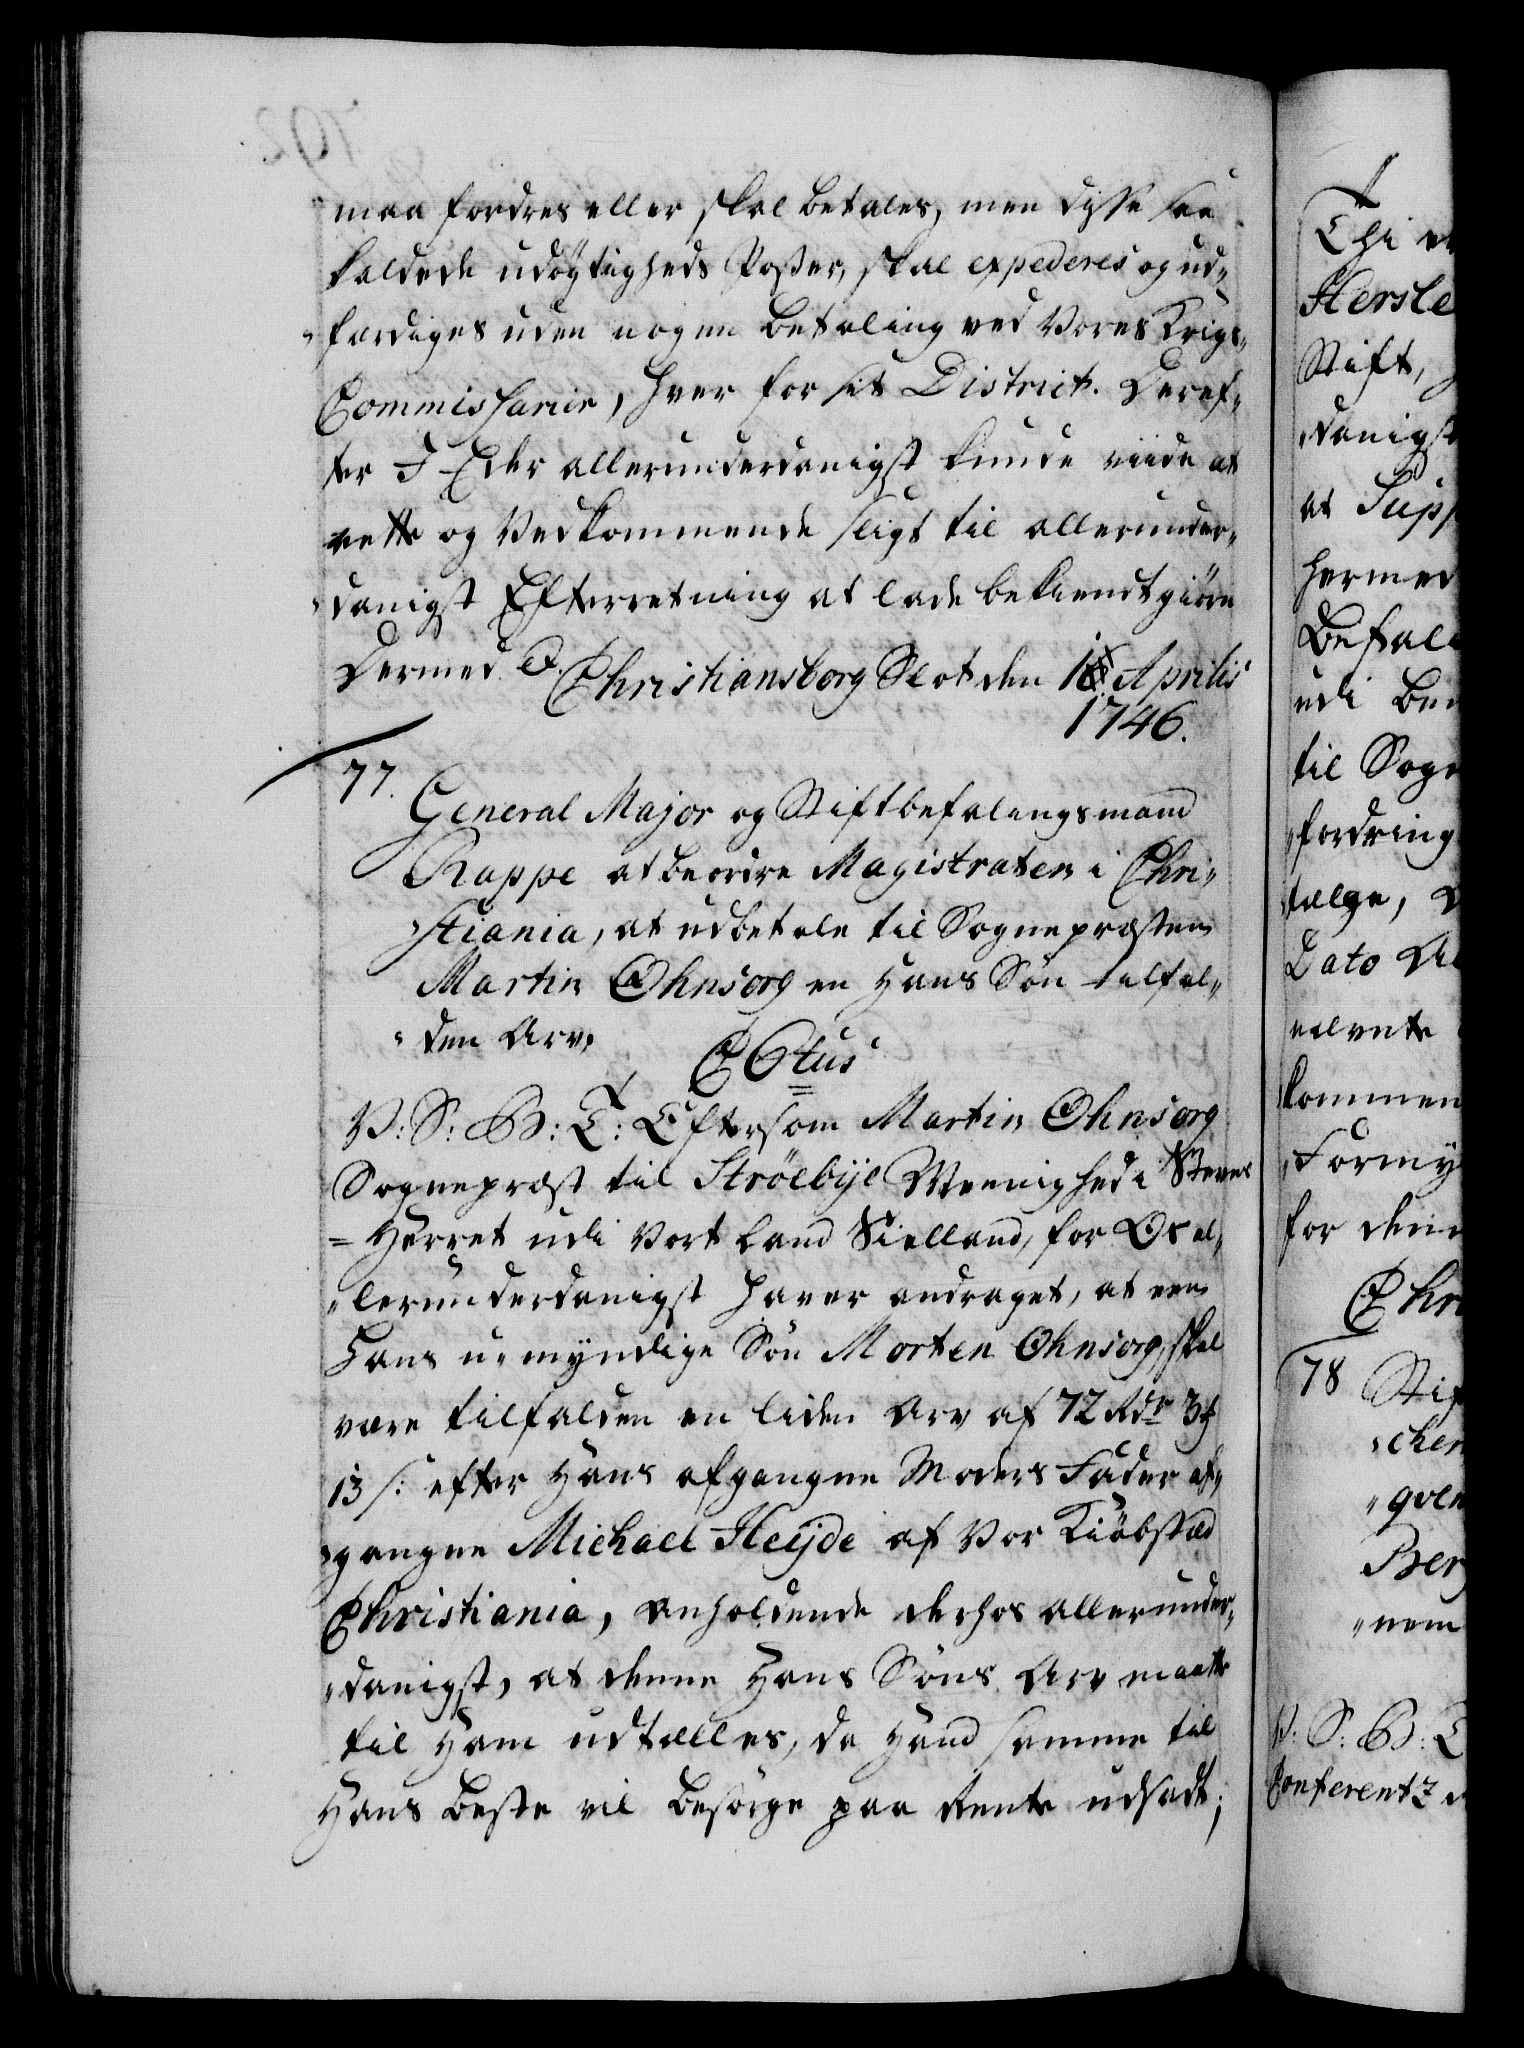 maa fordres eller skal betales, men disse saa
kaldede udøgtigheds Poster, skal expederes og ud„
„færdiges uden nogen betaling ved Vores Krigs„
Commissarier, hver for sit District. Deref„
ter I Eder allerunderdanigst kunde viide at
rette og Vedkommende sligt til allerunder„
„danigst Efterretning at lade bekiendtgiøre
Dermed &. Christiansborg Slot den 1 Aprilis
1746.
77. General Major og Stiftbefalingsmand
Rappe at beordre Magistraten i Chri„
„stiania, at udbetale til Sognepræsten
Martin Ohnsorg en Hans Søn tilfal„
„den Arv,
C Etus
V: S: B: T: Eftersom Martin Ohnsorg
Sognepræst til Ströebÿe Meenighed i Stevns
= Herret udi Vort Land Siælland, for Os al„
„lerunderdanigst haver andraget, at een
Hans u„myndige Søn Morten Ohnsorg, skal
være tilfalden en liden Arv af 72 Rdr 3 ₰
13 s: efter Hans afgangne Moders Fader af„
„gangne Michael Heÿde af Vor Kiöbstæd
Christiania, anholdende derhos allerunder„
„danigst, at denne Hans Søns Arv maatte
til Ham udtælles, da Hand samme til
Hans beste vil besørge paa Rente udsadt;
Thi
Herste
Stift,
„danigst
at Supp
hermed
Befale
udi
til Sogn
„fordring
Dato
kommen
„Formÿ
for den
Chri
78 Stif
„chen
„qven
Berg
„nem
V: S: B: T
Conferentz